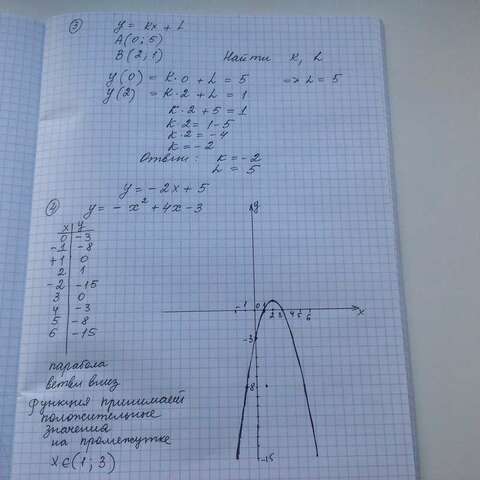 ③ y = kx + L
A(0; 5)
B(2; 1) Найти k, L
y(0) = k·0 + L = 5 => L = 5
y(2) = k·2 + L = 1
k·2 + 5 = 1
k·2 = 1-5
k·2 = -4
k = -2
Ответ: k = -2
L = 5
y = -2x + 5
② y = -x² + 4x - 3
x | y
0 | -3
-1 | -8
+1 | 0
2 | 1
-2 | -15
3 | 0
4 | -3
5 | -8
6 | -15
парабола
ветви вниз
функция принимает
положительные
значения
на промежутке
x∈(1; 3)
y
-1 0 1 2 3 4 5 6 x
-3
-8
-15